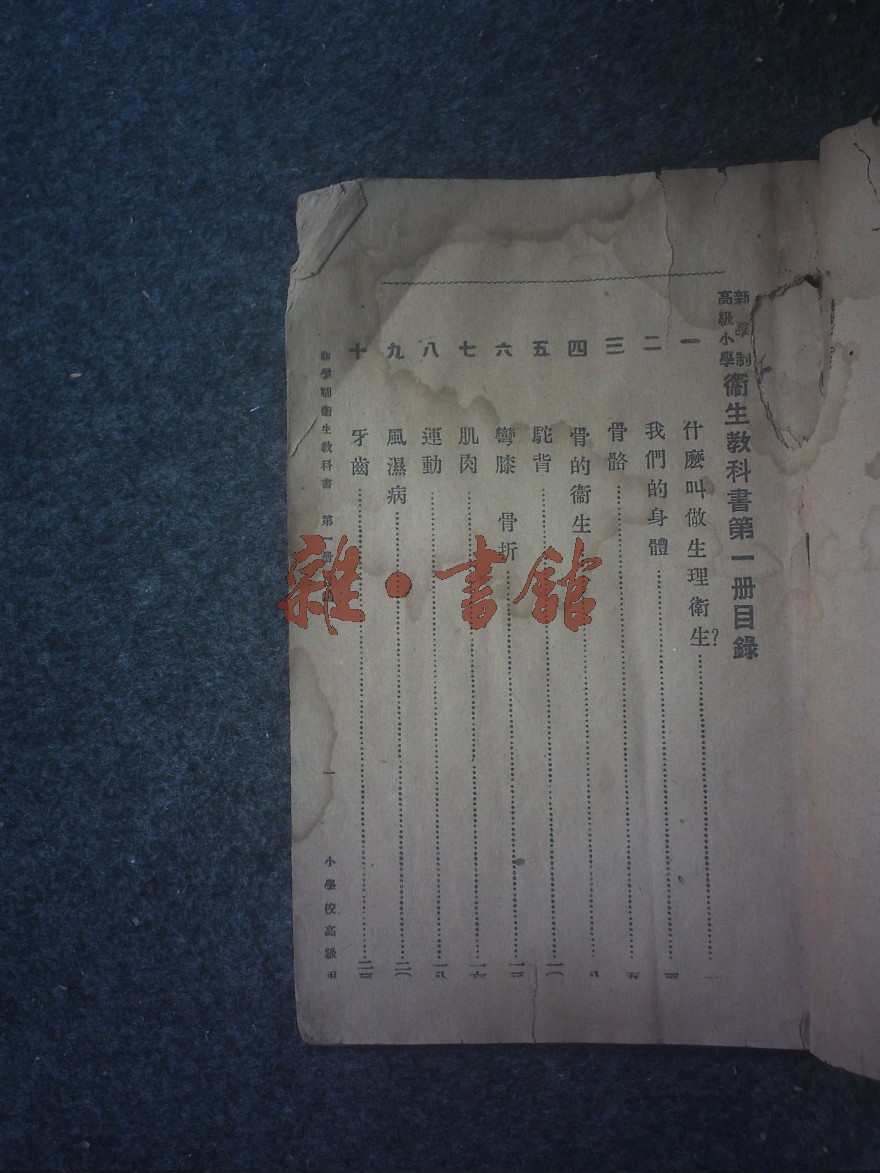 新學制
高級小學
衞生教科書第一册目錄
一 什麽叫做生理衛生?……一
二 我們的身體……三
三 骨骼……五
四 骨的衞生……八
五 駝背……一〇
六 彎膝 骨折……一三
七 肌肉……一六
八 運動……一八
九 風濕病……二〇
十 牙齒……二三
新學制衞生教科書 第一册 一 小學校高級用
雜·書館